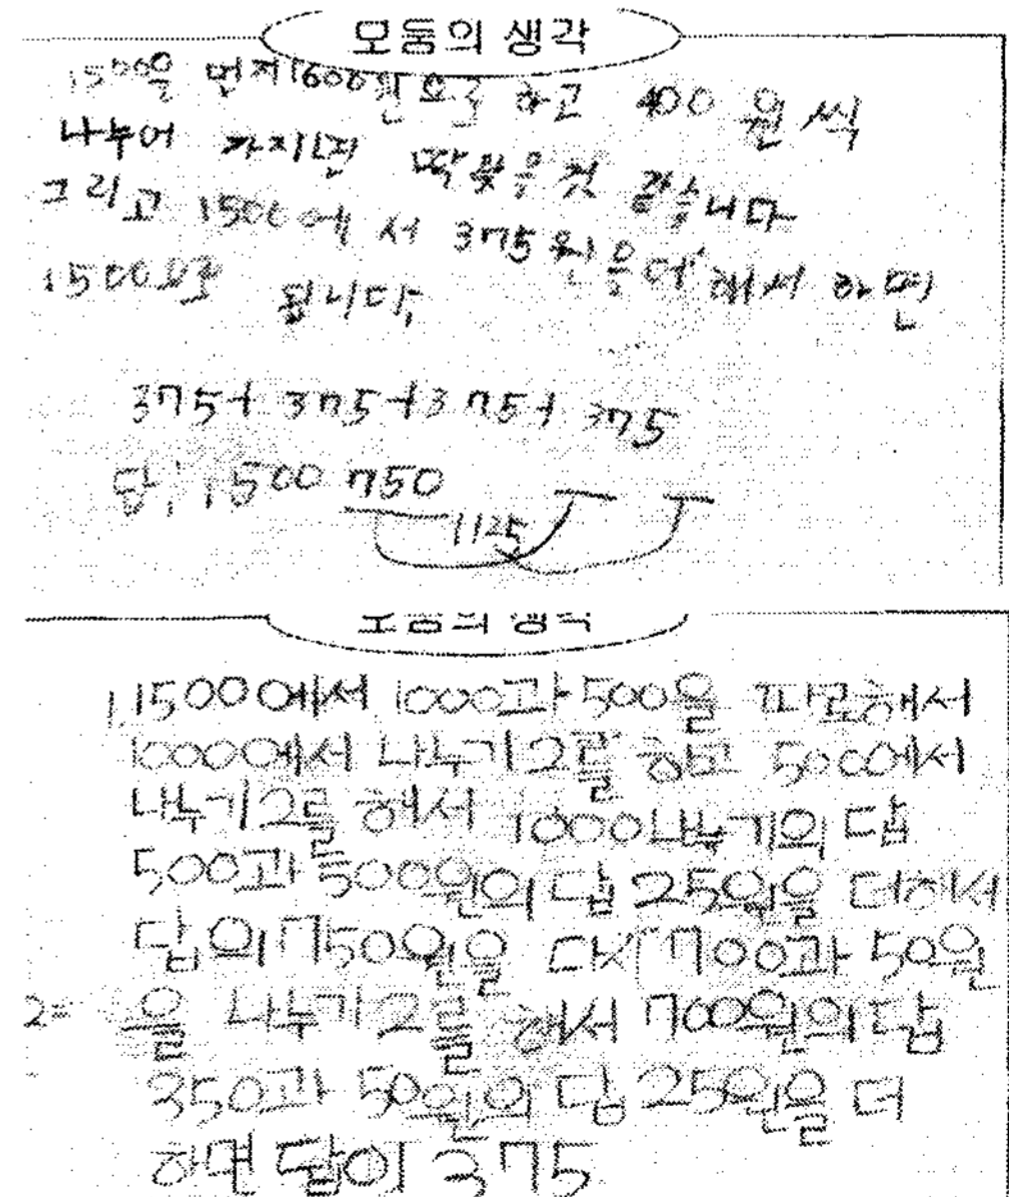 모둠의 생각
1500을 먼저 1600원으로 하고 400원씩
나누어 가지면 딱 맞을 것 같습니다
그리고 1500에서 375원을 더해서 하면
1500으로 됩니다,
375+375+375+375
답, 1500 750
1125
모둠의 생각
1.1500에서 1000과 500을 따로해서
1000에서 나누기2를 하고 500에서
나누기2를 해서 1000나누기의 답
500과 500원의 답 250원을 더해서
답의 750원을 다시 700과 50원
2= 을 나누기2를 해서 700원의 답
350과 50원의 답 25원을 더
하면 답이 375